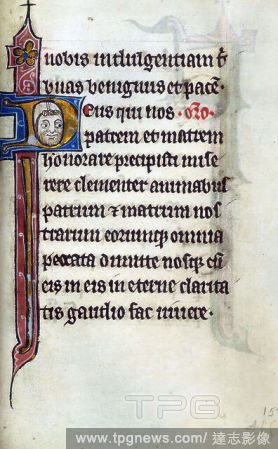 nobis indulgentiam tͥ
buas benignus et pacē·
Deus qui nos · oro·
patrem et matrem
honorare precepisti mise
rere clementer animabus
patrum ⁊ matrum nos
trarum eorumq; omnia
peccata dimitte nosq; cū
eis in eterne clarita
tis gaudio fac vivere·
TPG
www.tpgnews.com/ 達志影像